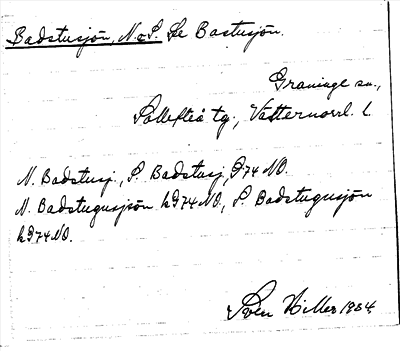 Badstusjön, N. o S. Se Bastusjön.
Graninge sn.,
Sollefteå tg., Västernorrl. l.
N. Badstusj., S. Badstusj., 974 NO.
N. Badstugusjön h 974 NO., S. Badstugusjön
h 974 NO.
Sven Hiller 1934